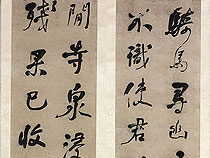 騎馬尋幽
不識使君
間寺泉浸
殘果已收